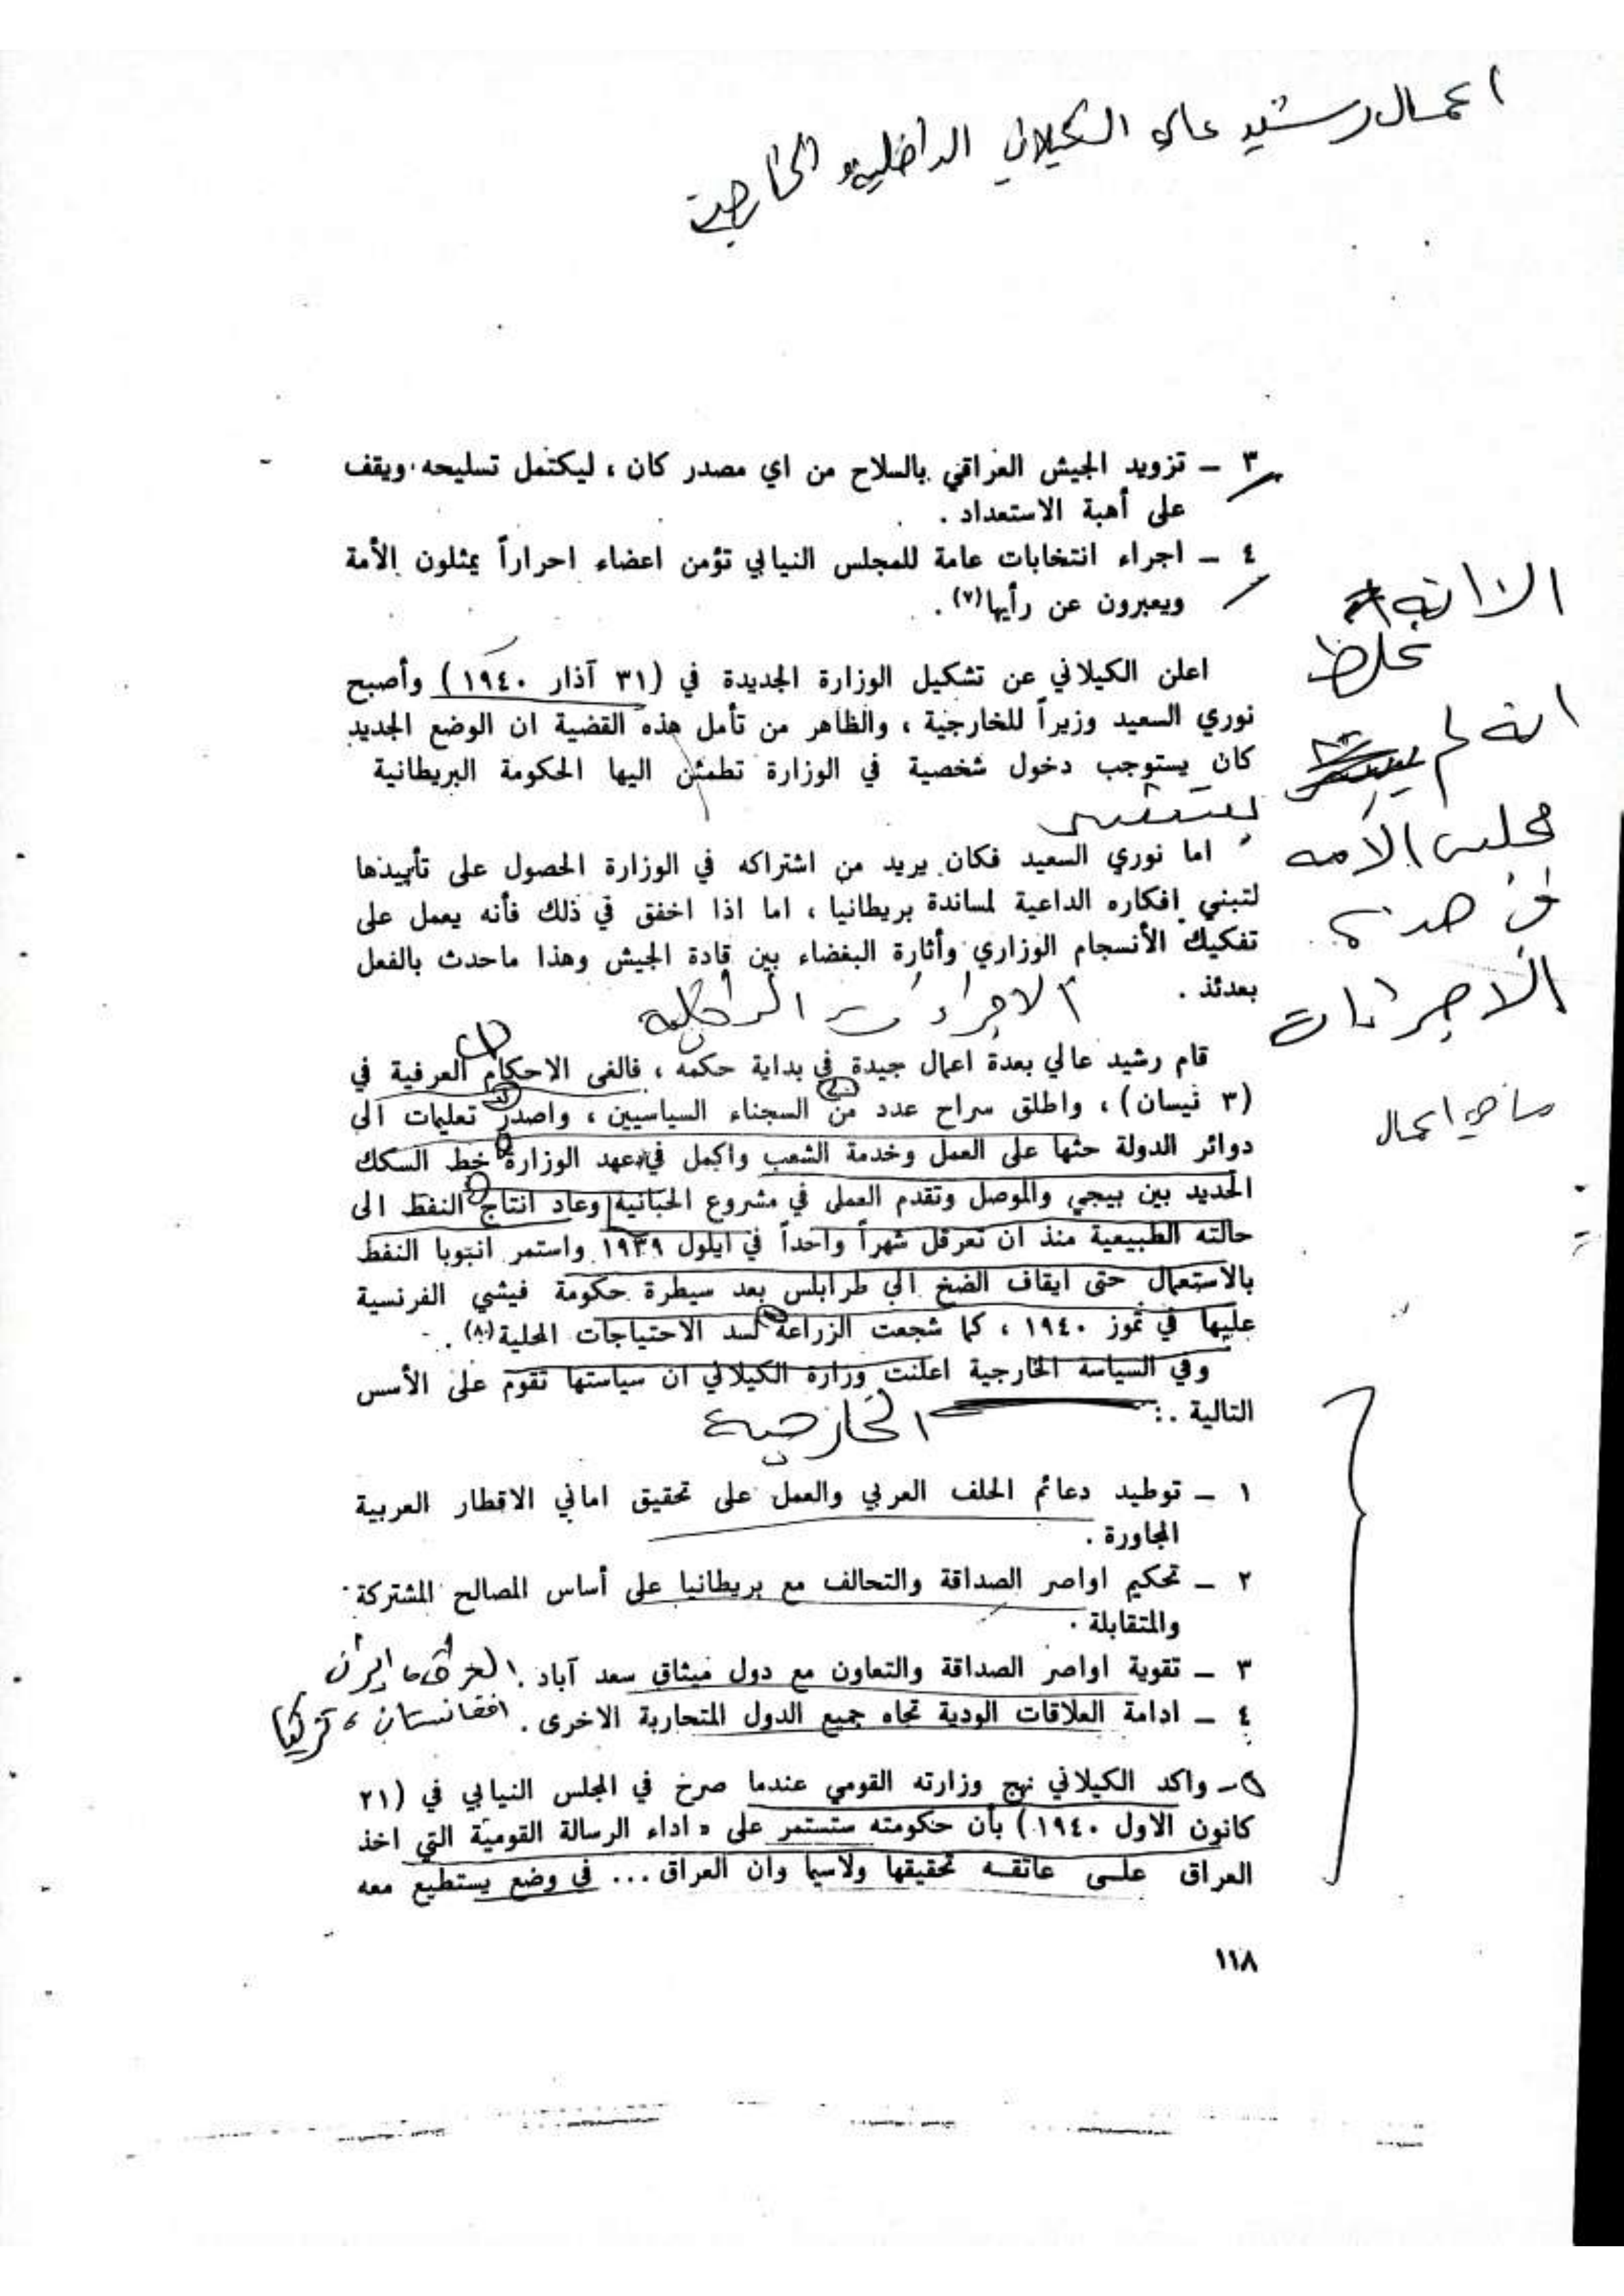 اعمال رشيد عالي الكيلاني الداخلية و الخارجية
٣ – تزويد الجيش العراقي بالسلاح من اي مصدر كان ، ليكتمل تسليحه ويقف
على أهبة الاستعداد .
٤ – اجراء انتخابات عامة للمجلس النيابي تؤمن اعضاء احراراً يمثلون الأمة
ويعبرون عن رأيها(٧) .
الا انه
غلط
انه لم
يستشر
مجلس الامه
في هذه
الاجراءات
ما هي اعمال
اعلن الكيلاني عن تشكيل الوزارة الجديدة في (٣١ آذار ١٩٤٠) وأصبح
نوري السعيد وزيراً للخارجية ، والظاهر من تأمل هذه القضية ان الوضع الجديد
كان يستوجب دخول شخصية في الوزارة تطمئن اليها الحكومة البريطانية
اما نوري السعيد فكان يريد من اشتراكه في الوزارة الحصول على تأييدها
لتبني افكاره الداعية لمساندة بريطانيا ، اما اذا اخفق في ذلك فأنه يعمل على
تفكيك الأنسجام الوزاري وأثارة البغضاء بين قادة الجيش وهذا ماحدث بالفعل
بعدئذ .
الاجراءات الداخلية
قام رشيد عالي بعدة اعمال جيدة في بداية حكمه ، فالغى الاحكام العرفية في
(٣ نيسان) ، واطلق سراح عدد من السجناء السياسيين ، واصدر تعليمات الى
دوائر الدولة حثها على العمل وخدمة الشعب واكمل في عهد الوزارة خط السكك
الحديد بين بيجي والموصل وتقدم العمل في مشروع الحبانية وعاد انتاج النفط الى
حالته الطبيعية منذ ان تعرقل شهراً واحداً في ايلول ١٩٣٩ واستمر انبوبا النفط
بالاستعمال حتى ايقاف الضخ الى طرابلس بعد سيطرة حكومة فيشي الفرنسية
عليها في تموز ١٩٤٠ ، كما شجعت الزراعة لسد الاحتياجات المحلية(٨) .
وفي السياسة الخارجية اعلنت وزارة الكيلاني ان سياستها تقوم على الأسس
التالية :
الخارجية
١ – توطيد دعائم الحلف العربي والعمل على تحقيق اماني الاقطار العربية
المجاورة .
٢ – تحكيم اواصر الصداقة والتحالف مع بريطانيا على أساس المصالح المشتركة
والمتقابلة .
٣ – تقوية اواصر الصداقة والتعاون مع دول ميثاق سعد آباد . العراق ، ايران
٤ – ادامة العلاقات الودية تجاه جميع الدول المتحاربة الاخرى . افغانستان ، تركيا
٥ – واكد الكيلاني نهج وزارته القومي عندما صرخ في المجلس النيابي في (٢١
كانون الاول ١٩٤٠) بأن حكومته ستستمر على « اداء الرسالة القومية التي اخذ
العراق على عاتقه تحقيقها ولاسيما وان العراق ... في وضع يستطيع معه
١١٨